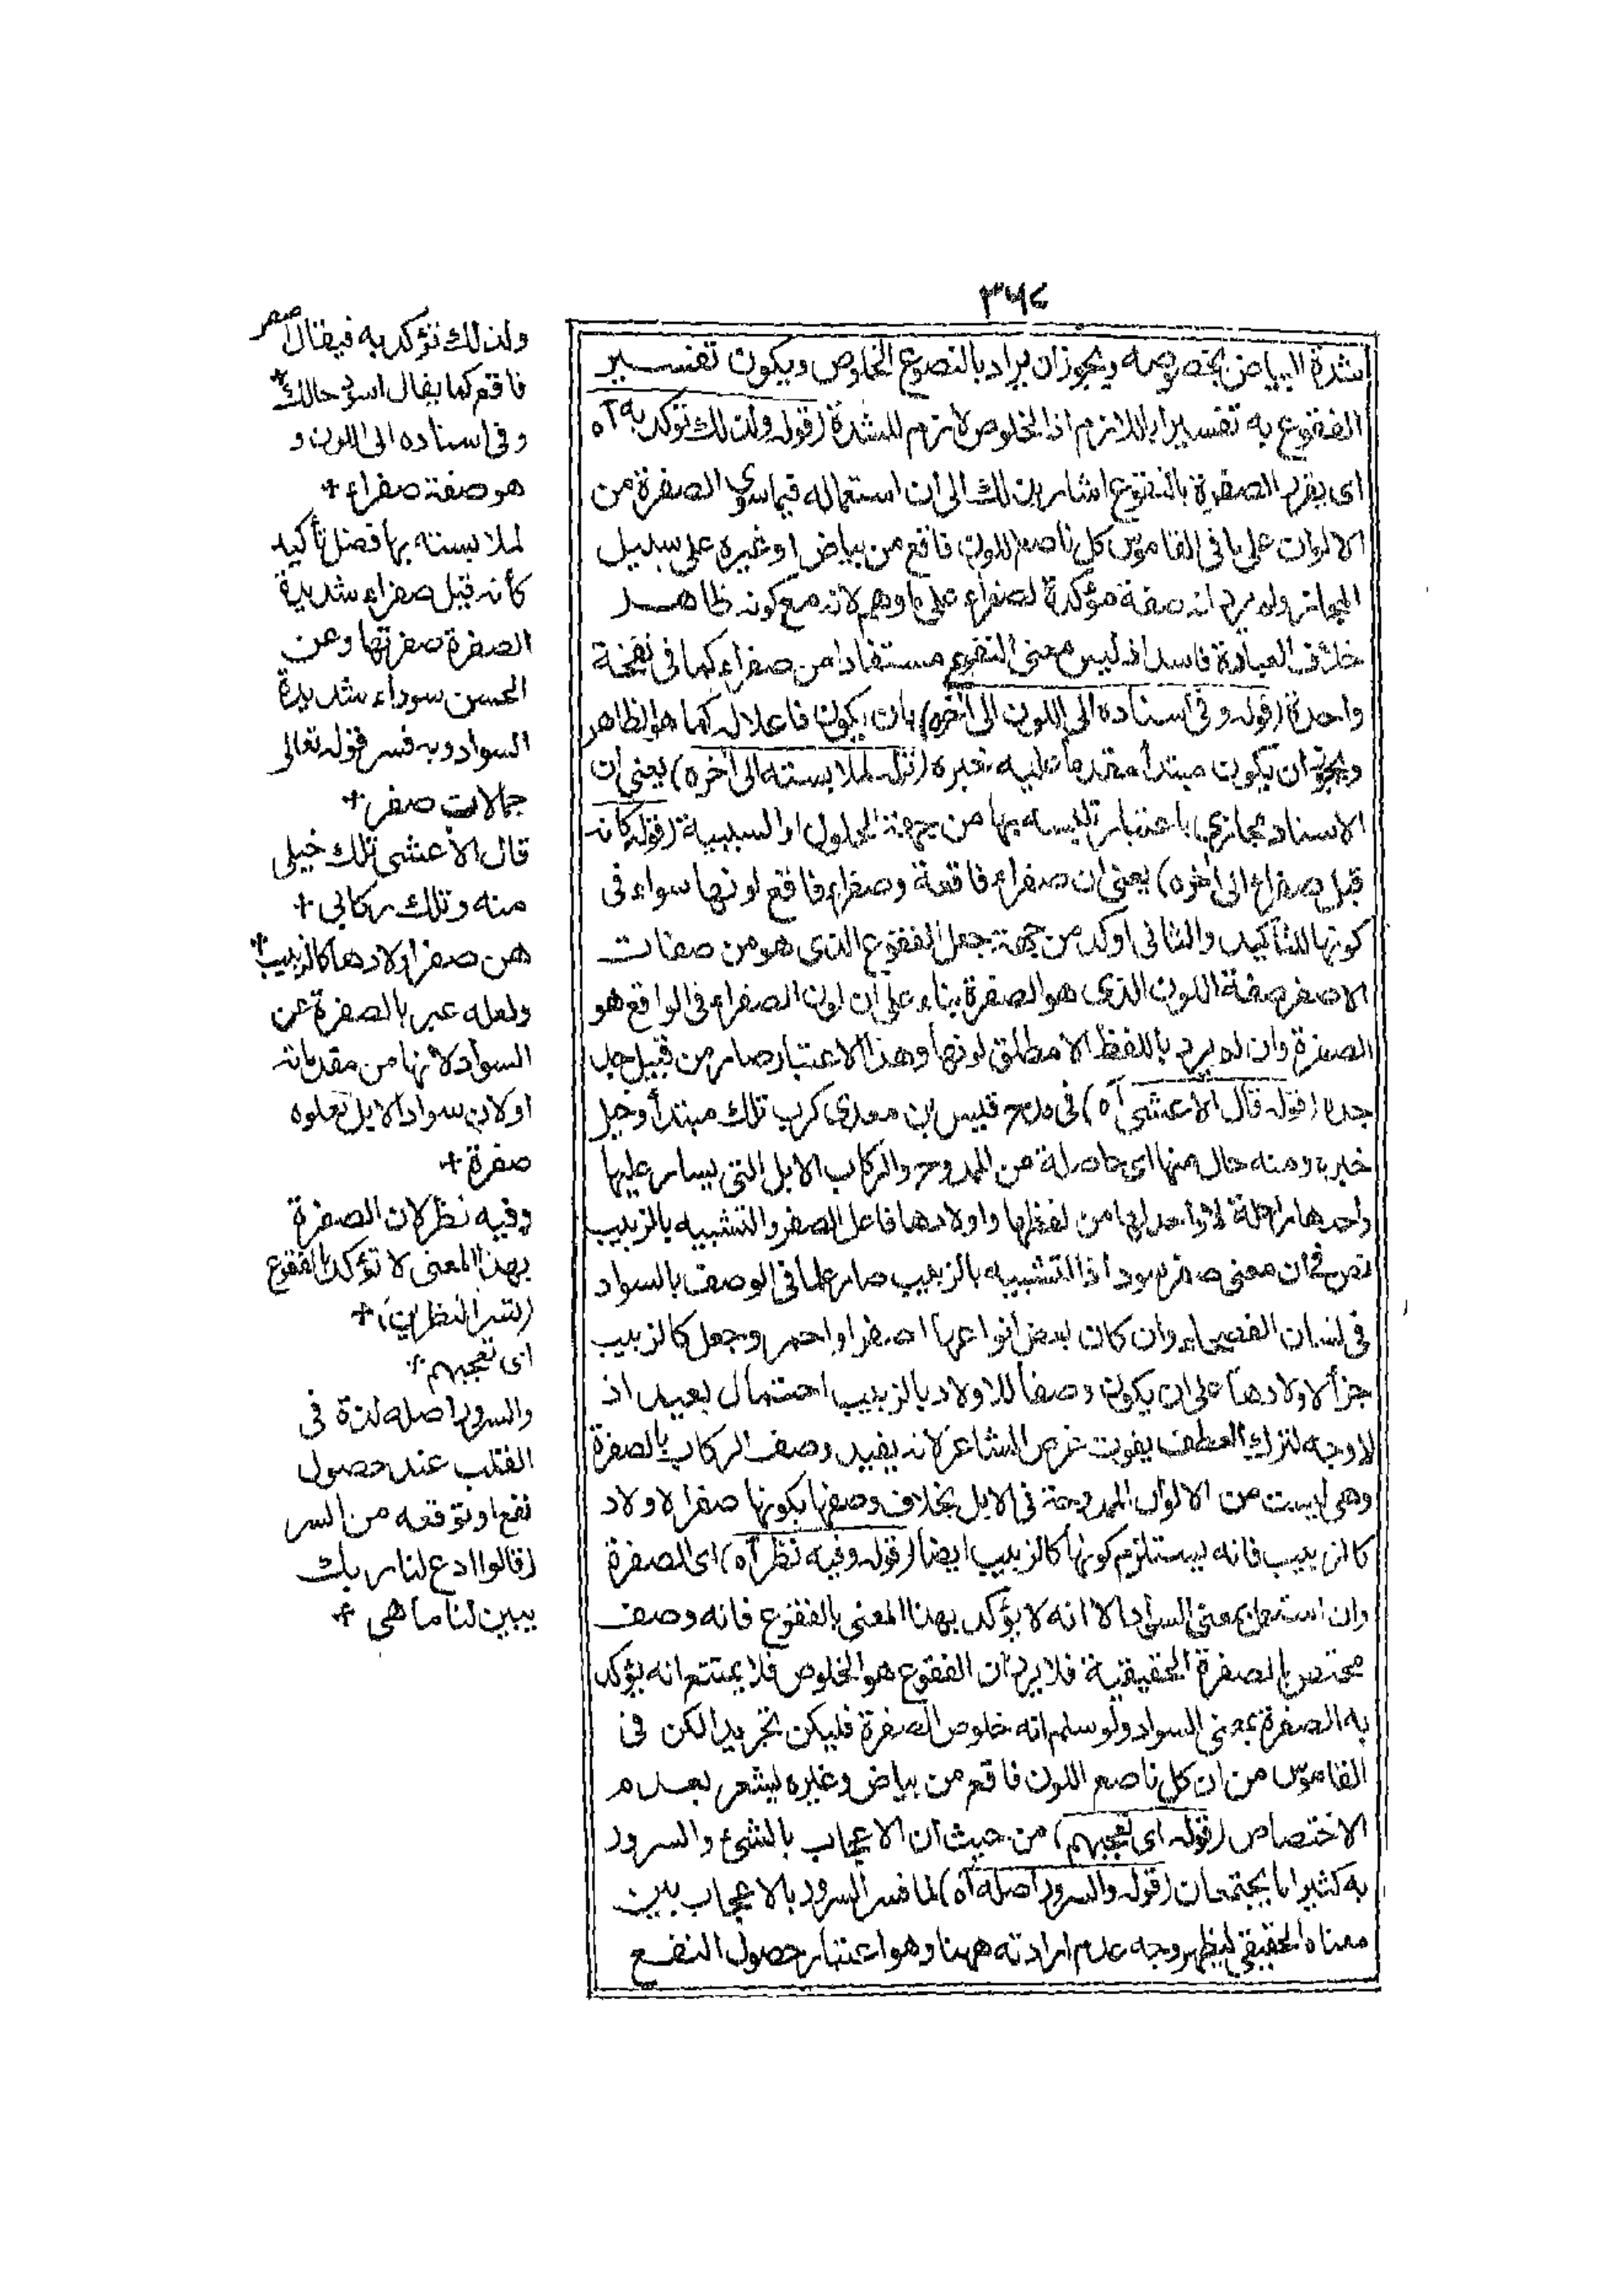 ٣٦٤
شدة البياض بخصوصه ويجوز ان يراد بالنصوع الخلوص ويكون تفسير
الفقوع به تفسيرا باللازم اذ الخلوص لازم للشدة (قوله ولذلك تؤكد به آه
اى بقرم الصفرة بالفقوع اشار بذلك الى ان استعماله فيما سوى الصفرة من
الالوان على ما فى القاموس كل ناصع اللون فاقع من بياض او غيره على سبيل
المجاز ولم يرد انه صفة مؤكدة لصفراء على ما وهم لانه مع كونه ظاهر
خلاف العبارة فاسد اذ ليس معنى الفقوع مستفادا من صفراء كما فى نفخة
واحدة (قوله وفى اسناده الى اللون الى آخره) بان يكون فاعلا له كما هو الظاهر
ويجوز ان يكون مبتدأ مقدما عليه خبره (قوله لملابسته الى آخره) يعنى ان
الاسناد مجازى باعتبار تلبسه بها من جهة الحلول او السببية (قوله كانه
قيل صفراء الى آخره) يعنى ان صفراء فاقعة وصفراء فاقع لونها سواء فى
كونها للتاكيد والثانى اوكد من جهة جعل الفقوع الذى هو من صفات
الاصفر صفة اللون الذى هو الصفرة بناء على ان لون الصفراء فى الواقع هو
الصفرة وان لم يرد باللفظ الا مطلق لونها وهذا الاعتبار صار من قبيل جد
جده (قوله قال الاعشى آه) فى مدح قيس بن معدى كرب تلك مبتدأ وخيل
خبره ومنه حال منها اى حاصلة من الممدوح والركاب الابل التى يسار عليها
واحدها راحلة لا واحد لها من لفظها واولادها فاعل الصفر والتشبيه بالزبيب
نص فى ان معنى صفر سود اذ التشبيه بالزبيب صار علما فى الوصف بالسواد
فى لسان الفصحاء وان كان بعض انواعها اصفر او احمر وجعل كالزبيب
جزأ لاولادها على ان يكون وصفا للاولاد بالزبيب احتمال بعيد اذ
لا وجه لترك العطف يفوت غرض الشاعر لانه يفيد وصف الركاب بالصفرة
وهى ليست من الالوان الممدوحة فى الابل بخلاف وصفها بكونها صفر الاولاد
كالزبيب فانه يستلزم كونها كالزبيب ايضا (قوله وفيه نظر آه) اى الصفرة
وان استعمل بمعنى السواد الا انه لا يؤكد بهذا المعنى بالفقوع فانه وصف
مختص بالصفرة الحقيقية فلا يرد ان الفقوع هو الخلوص فلا يمتنع انه يؤكد
به الصفرة بمعنى السواد ولو سلم انه خلوص الصفرة فليكن تجريدا لكن فى
القاموس من ان كل ناصع اللون فاقع من بياض وغيره ليشعر بعدم
الاختصاص (قوله اى تعجبهم) من حيث ان الاعجاب بالشئ والسرور
به كثيرا ما يجتمعان (قوله والسرور اصله آه) لما فسر السرور بالاعجاب بين
معناه الحقيقى ليظهر وجه عدم ارادته ههنا وهو اعتبار حصول النفع
ولذلك تؤكد به فيقال اصفر
فاقع كما يقال اسود حالك +
وفى اسناده الى اللون و
هو صفة صفراء +
لملابسته بها فضل تأكيد
كأنه قيل صفراء شديدة
الصفرة صفرتها وعن
الحسن سوداء شديدة
السواد وبه فسر قوله تعالى
جمالات صفر +
قال الأعشى تلك خيلى
منه وتلك ركابى +
هن صفر اولادها كالزبيب +
ولعله عبر بالصفرة عن
السواد لأنها من مقدماته
او لان سواد الابل تعلوه
صفرة +
وفيه نظر لان الصفرة
بهذا المعنى لا تؤكد بالفقوع
(تسر الناظرين) +
اى تعجبهم +
والسرور اصله لذة فى
القلب عند حصول
نفع او توقعه من السر
(قالوا ادع لنا ربك
يبين لنا ما هى +